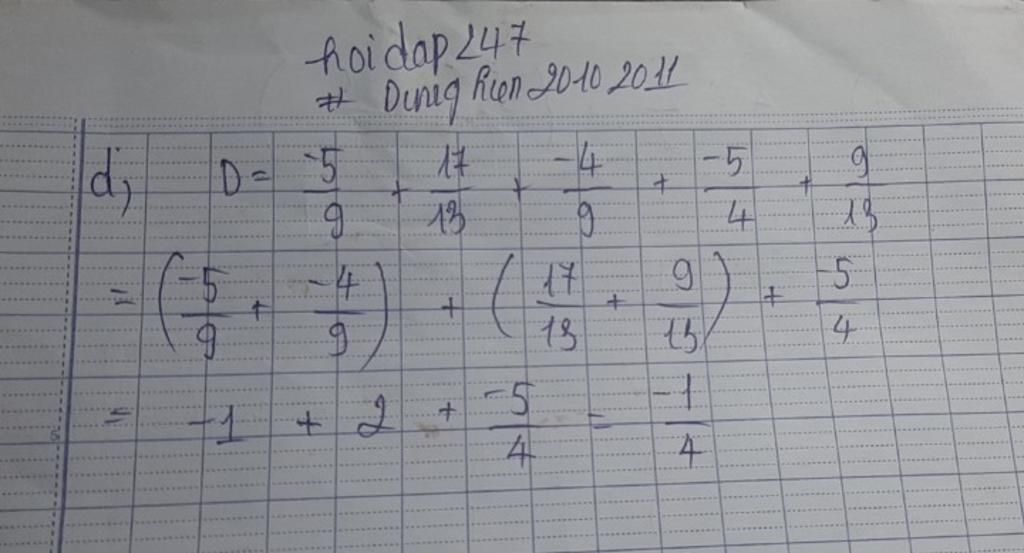 hoidap247
# Dung hien 2010 2011
d, D = -5/9 + 17/13 + -4/9 + -5/4 + 9/13
= (-5/9 + -4/9) + (17/13 + 9/13) + -5/4
= -1 + 2 + -5/4 = -1/4